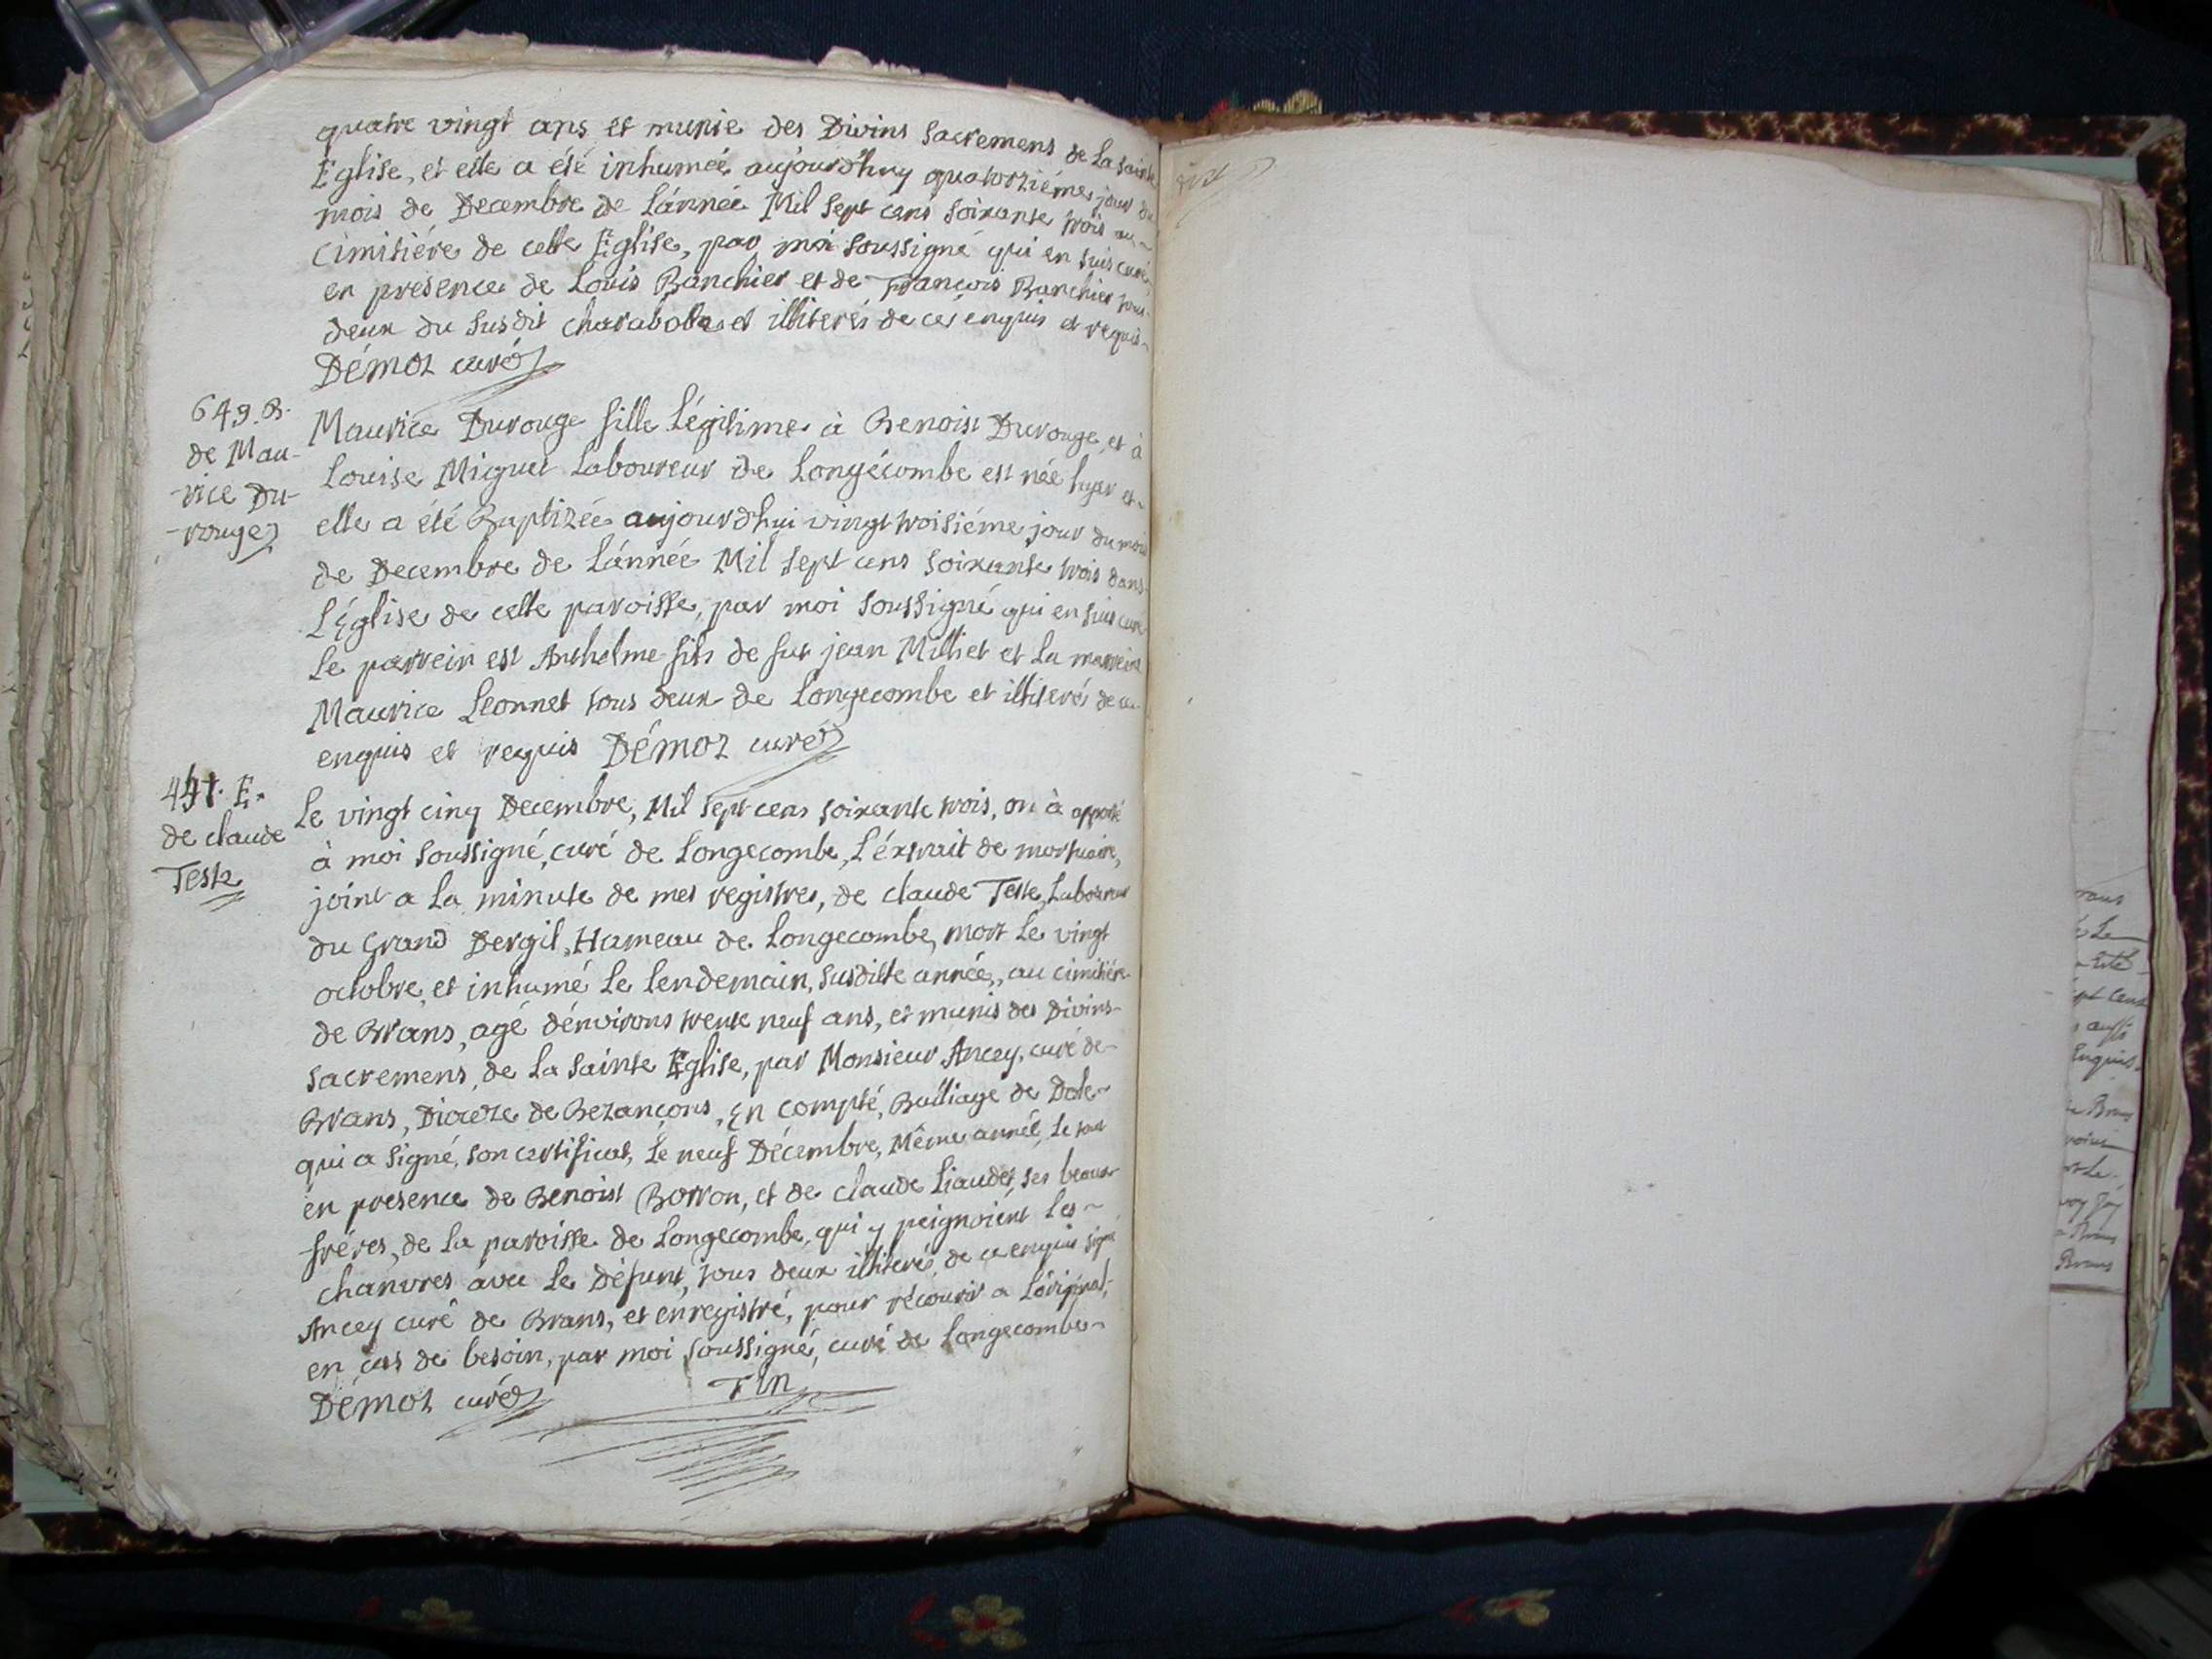 quatre vingt ans et munie des Divins Sacremens de la sainte
Eglise, et elle a été inhumée aujourd'huy quatorziéme jour du
mois de Decembre de L'année Mil Sept cens Soixante trois au
Cimitiére de cette Eglise, par moi Soussigné qui en suis curé,
en presence de Louis Banchier et de François Banchier tous
deux du Susdit charabota et illiterés de ce enquis et requis
Démoz curé
649. B.
de Mau-
-rice Du-
-rouge
Maurice Durouge fille Légitime à Benoist Durouge, et à
Louise Miguet Laboureur de Longécombe est née hyer et
elle a été Baptizée aujourd'hui vingt troisiéme jour du mois
de Decembre de L'année Mil Sept cens Soixante trois dans
L'Église de cette paroisse, par moi Soussigné qui en suis curé
Le parrein est Anthelme fils de fut jean Milliet et La marreine
Maurice Leonnet tous deux de Longecombe et illiterés de ce
enquis et requis Démoz curé
E.
de claude
Teste
Le vingt cinq Decembre, Mil Sept cens soixante trois, on à apporté
à moi Soussigné, curé de Longecombe, L'éxtrait de mortuaire,
joint a La minute de mes registres, de claude Teste, Laboureur
du Grand Dergil, Hameau de Longecombe, mort Le vingt
octobre, et inhumé Le lendemain, Susditte année, au cimitiére
de Brans, agé d'énvirons trente neuf ans, et munis des Divins
Sacremens, de La Sainte Eglise, par Monsieur Ancey, curé de
Brans, Dioceze de Bezançons, En compté, Bailliage de Dole
qui a Signé, Son certificat, Le neuf Décembre, Même année, Le tout
en presence de Benoist Borron, et de claude Liaudet, Ses beaux
fréres, de La paroisse de Longecombe, qui y peignoiént Les
chanvres avec Le Défunt, tous deux illiterés de ce enquis signé
Ancey curé de Brans, et enregistré, pour récourir a L'original,
en cas de besoin, par moi Soussigné, curé de Longecombe
Démoz curé